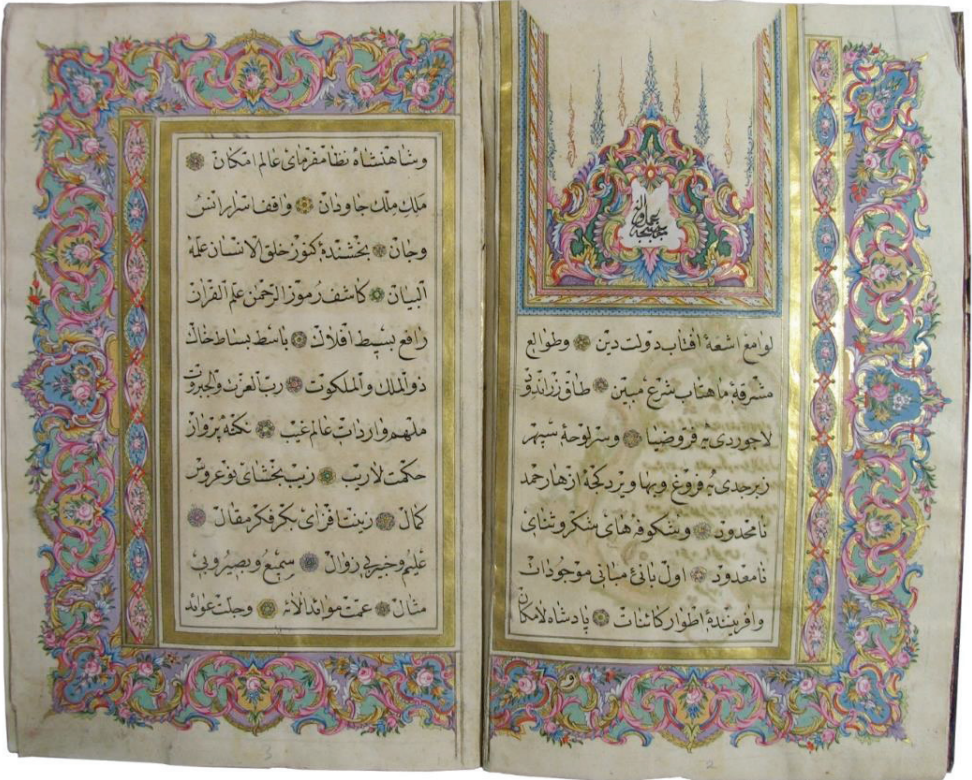 لوامع اشعهٔ افتاب دولت دین وطوالع
مشرقهٔ ماهتاب شرع مبین طاق زراندود
لاجوردی یه فروضیا وسرلوحهٔ سپهر
زبرجدی یه فروغ وبها ویردکجه ازهار حمد
نامحدود وشکوفه های شکر وثنای
نامعدود اول بانیٔ مبانی موجودات
وافرینندهٔ اطوار کائنات پادشاه لامکان
وشاهنشاه نظام فرمای عالم امکان
ملک ملک جاودان واقف اسرار انس
وجان بخشندهٔ کنوز خلق الانسان علمه
البیان کاشف رموز الرحمن علم القران
رافع بسیط افلاک باسط بساط خاک
ذوالملک والملکوت رب العزت والجبروت
ملهم واردات عالم غیب نکته پرداز
حکمت لاریب زیب بخشای نوعروس
کمال زینت افزای بکر فکر مقال
علیم وخبیر بی زوال سمیع وبصیر وبی
مثال عمت موائد الائه وجلت عوائد